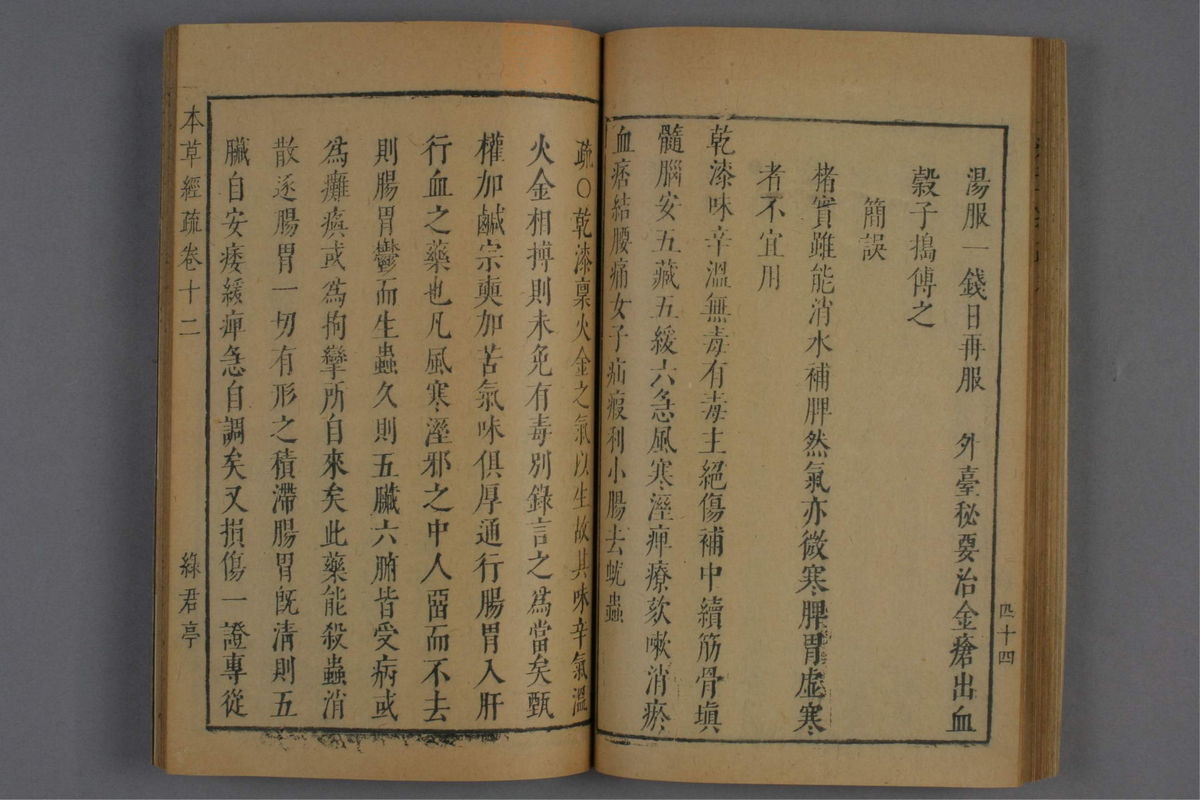 湯服一錢日再服　外臺秘要治金瘡出血
榖子搗傅之
簡誤
楮實雖能消水補脾然氣亦微寒脾胃虛寒
者不宜用
乾漆味辛溫無毒有毒主絕傷補中續筋骨塡
髓腦安五藏五緩六急風寒溼痺療欬嗽消瘀
血痞結腰痛女子疝瘕利小腸去蚘蟲
四十四
疏○乾漆禀火金之氣以生故其味辛氣溫
火金相搏則未免有毒別錄言之為當矣甄
權加鹹宗奭加苦氣味俱厚通行腸胃入肝
行血之藥也凡風寒溼邪之中人畱而不去
則腸胃鬱而生蟲久則五臟六腑皆受病或
為癱瘓或為拘攣所自來矣此藥能殺蟲消
散逐腸胃一切有形之積滯腸胃既清則五
臟自安痿緩痺急自調矣又損傷一證專從
本草經疏卷十二　綠君亭